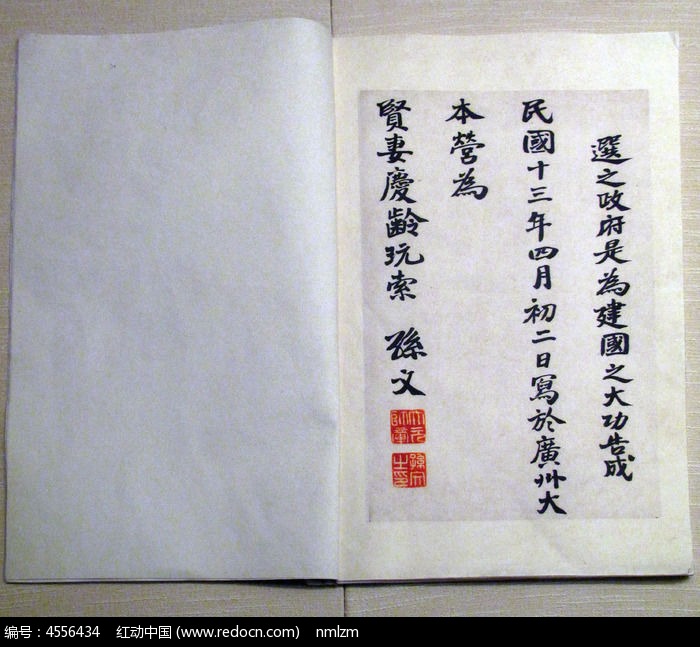 選之政府是為建國之大功告成
民國十三年四月初二日寫於廣州大
本營為
賢妻慶齡玩索 孫文
大元帥章
孫文之印
编号：4556434 红动中国 (www.redocn.com) nmlzm